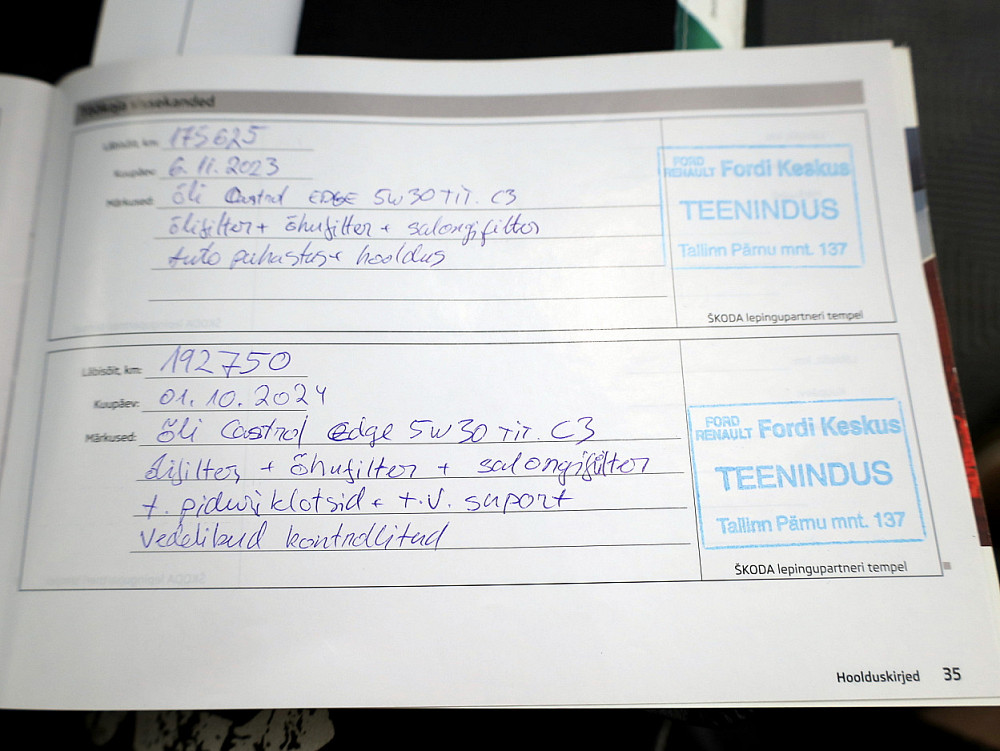 Töökoja sissekanded
Läbisõit, km: 175625
Kuupäev: 6.11.2023
Märkused: Õli Castrol EDGE 5W30 TIT. C3
õlifilter + õhufilter + salongifilter
puhastus + hooldus
FORD RENAULT Fordi Keskus
TEENINDUS
Tallinn Pärnu mnt. 137
ŠKODA lepingupartneri tempel
Läbisõit, km: 192750
Kuupäev: 01.10.2024
Märkused: Õli Castrol Edge 5W30 TIT. C3
õlifilter + õhufilter + salongifilter
+. piduriklotsid + t.v. suport
Vedelikud kontrollitud
FORD RENAULT Fordi Keskus
TEENINDUS
Tallinn Pärnu mnt. 137
ŠKODA lepingupartneri tempel
Hoolduskirjed 35